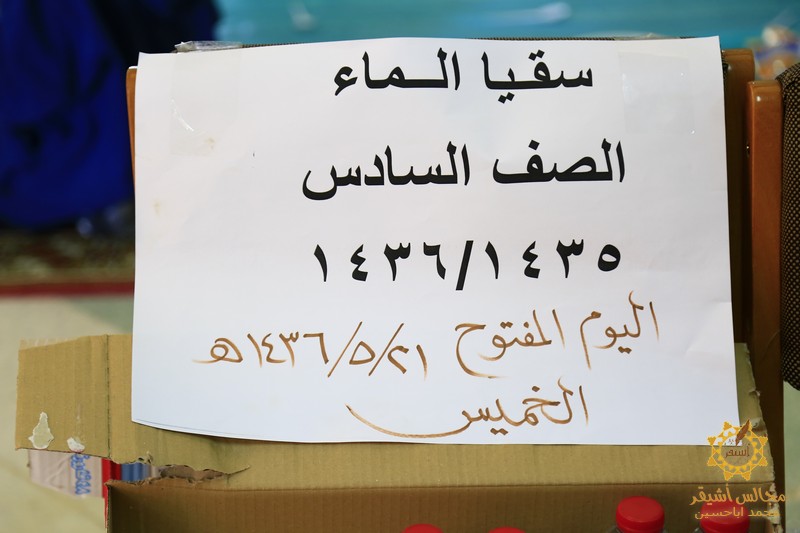 سقيا الماء
الصف السادس
١٤٣٦/١٤٣٥
اليوم المفتوح ١٤٣٦/٥/٢١هـ
الخميس
مجالس أشيقر
محمد اباحسين